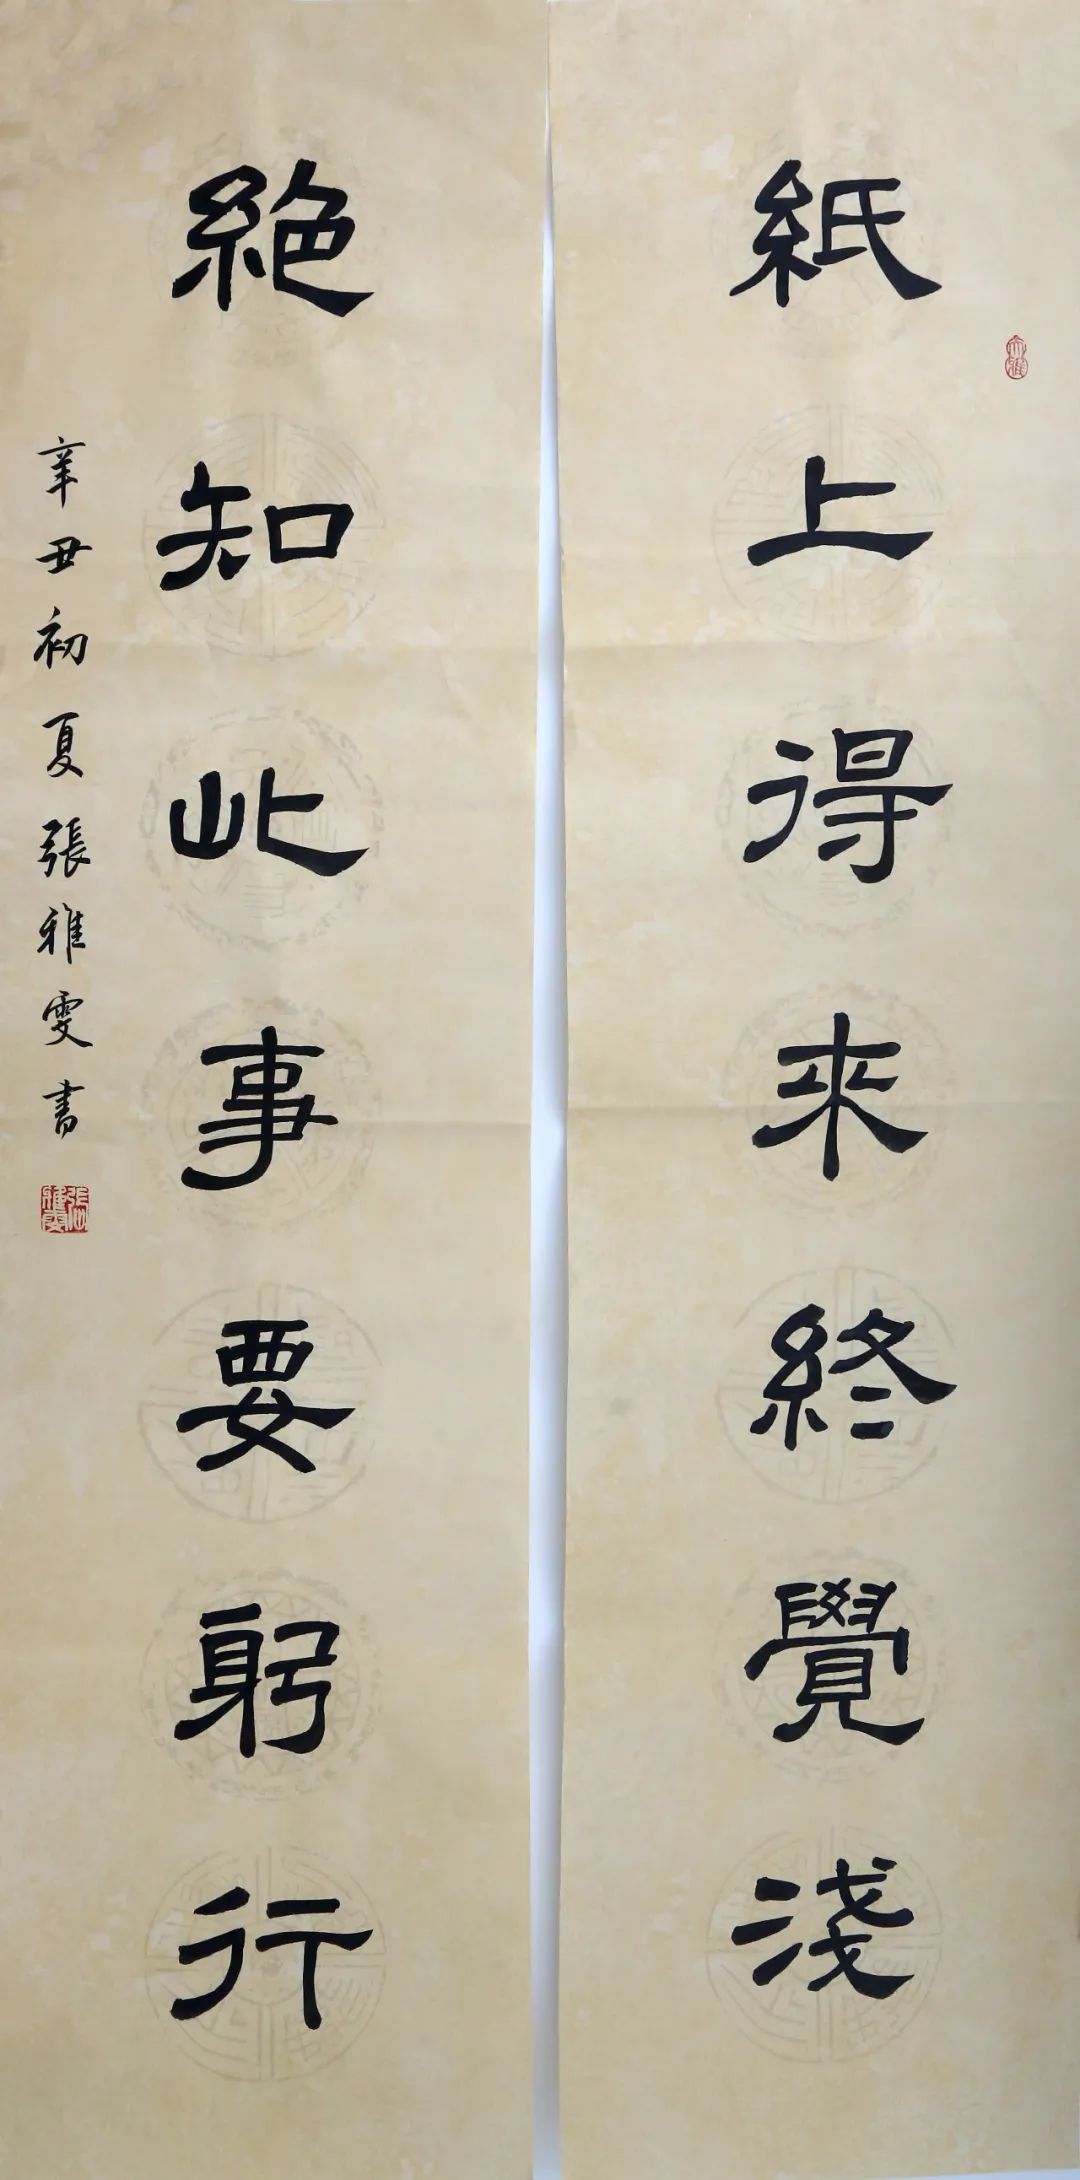 紙上得來終覺淺
絶知此事要躬行
辛丑初夏張雅雯書
張雅雯